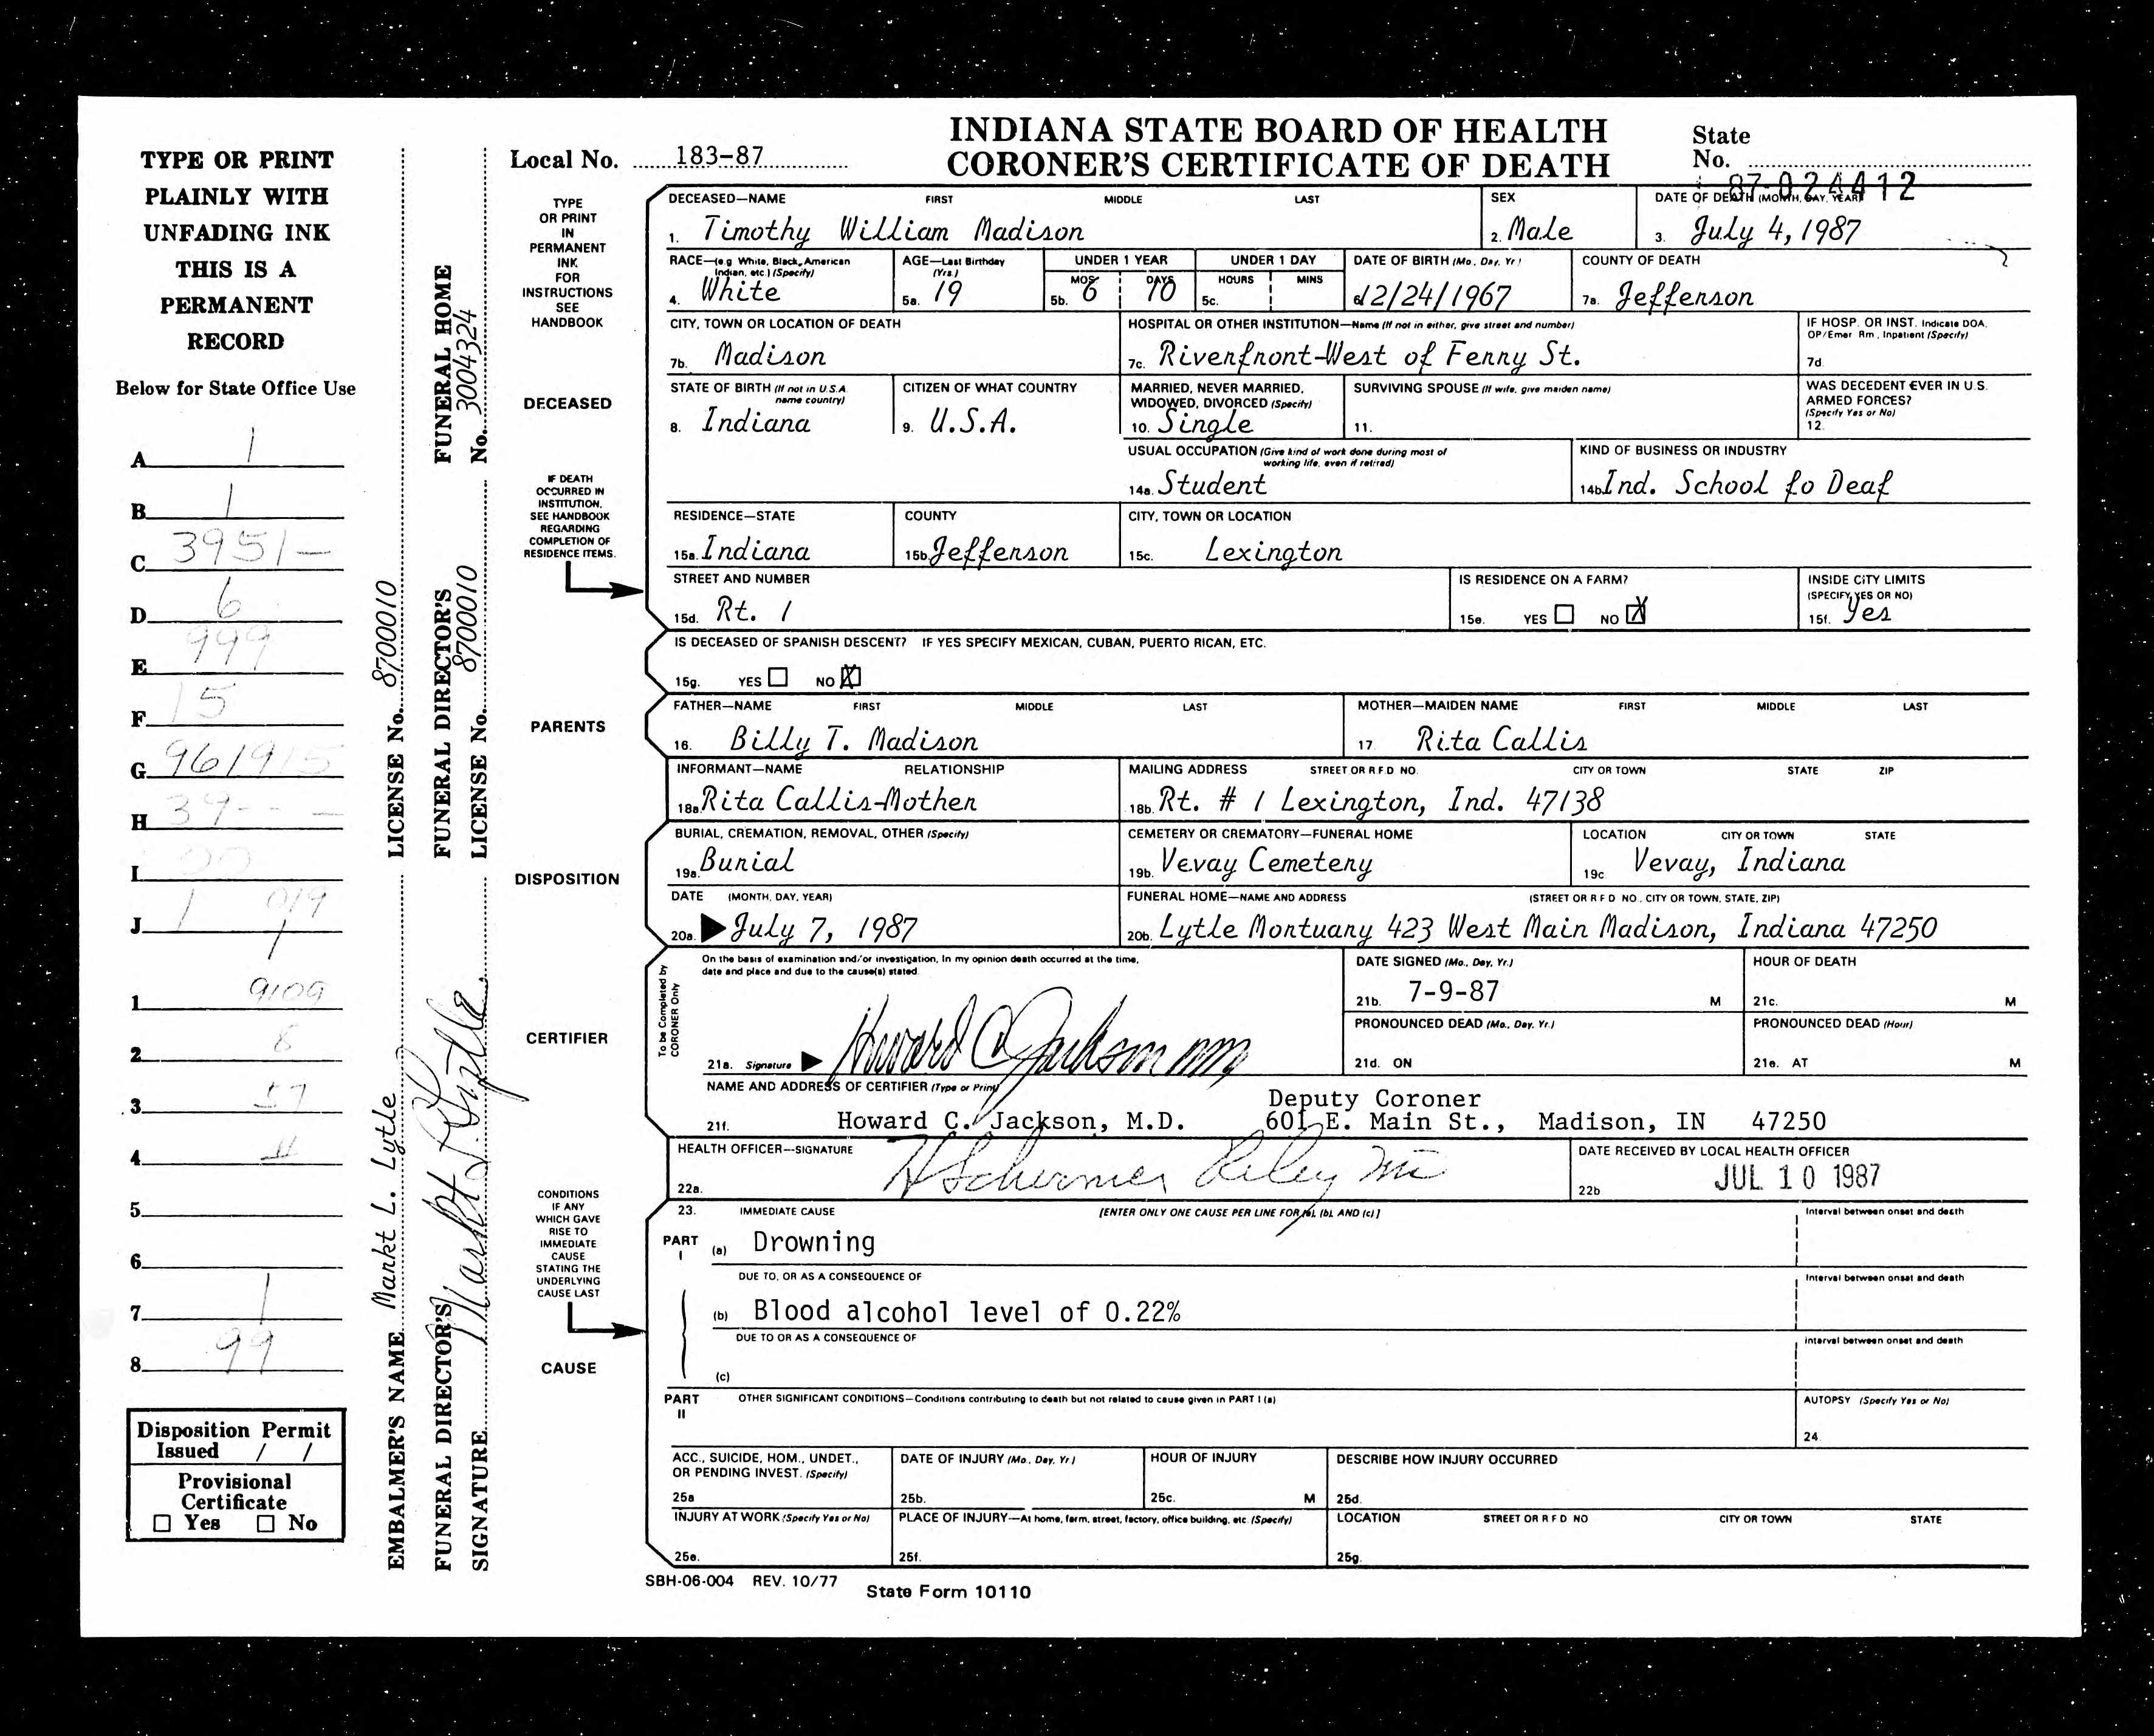 INDIANA STATE BOARD OF HEALTH
CORONER'S CERTIFICATE OF DEATH
Local No. 183-87
State
No.
87-024412
TYPE OR PRINT
PLAINLY WITH
UNFADING INK
THIS IS A
PERMANENT
RECORD
Below for State Office Use
A 1
B 1
C 3951-
D 6
E 999
F 15
G 961915
H 39---
I 00
J 1 019
1
1 9109
2 8
3 57
4
5
6
7 1
8 99
Disposition Permit
Issued / /
Provisional
Certificate
☐ Yes ☐ No
EMBALMER'S NAME Markt L. Lytle LICENSE No. 8700010
FUNERAL DIRECTOR'S
SIGNATURE Markt L. Lytle
FUNERAL DIRECTOR'S
LICENSE No. 8700010
FUNERAL HOME
No. 3004324
TYPE
OR PRINT
IN
PERMANENT
INK
FOR
INSTRUCTIONS
SEE
HANDBOOK
DECEASED
IF DEATH
OCCURRED IN
INSTITUTION,
SEE HANDBOOK
REGARDING
COMPLETION OF
RESIDENCE ITEMS.
PARENTS
DISPOSITION
CERTIFIER
CONDITIONS
IF ANY
WHICH GAVE
RISE TO
IMMEDIATE
CAUSE
STATING THE
UNDERLYING
CAUSE LAST
CAUSE
DECEASED—NAME FIRST MIDDLE LAST
1. Timothy William Madison
SEX
2. Male
DATE OF DEATH (MONTH, DAY, YEAR)
3. July 4, 1987
RACE—(e.g. White, Black, American
Indian, etc.) (Specify)
4. White
AGE—Last Birthday
(Yrs.)
5a. 19
UNDER 1 YEAR
MOS DAYS
5b. 6 10
UNDER 1 DAY
HOURS MINS
5c.
DATE OF BIRTH (Mo., Day, Yr.)
6 12/24/1967
COUNTY OF DEATH
7a. Jefferson
CITY, TOWN OR LOCATION OF DEATH
7b. Madison
HOSPITAL OR OTHER INSTITUTION—Name (If not in either, give street and number)
7c. Riverfront-West of Ferry St.
IF HOSP. OR INST. Indicate DOA,
OP/Emer Rm, Inpatient (Specify)
7d.
STATE OF BIRTH (If not in U.S.A.
name country)
8. Indiana
CITIZEN OF WHAT COUNTRY
9. U.S.A.
MARRIED, NEVER MARRIED,
WIDOWED, DIVORCED (Specify)
10. Single
SURVIVING SPOUSE (If wife, give maiden name)
11.
WAS DECEDENT EVER IN U.S.
ARMED FORCES?
(Specify Yes or No)
12.
USUAL OCCUPATION (Give kind of work done during most of
working life, even if retired)
14a. Student
KIND OF BUSINESS OR INDUSTRY
14b. Ind. School fo Deaf
RESIDENCE—STATE
15a. Indiana
COUNTY
15b. Jefferson
CITY, TOWN OR LOCATION
15c. Lexington
STREET AND NUMBER
15d. Rt. 1
IS RESIDENCE ON A FARM?
15e. YES ☐ NO ☒
INSIDE CITY LIMITS
(SPECIFY YES OR NO)
15f. Yes
IS DECEASED OF SPANISH DESCENT? IF YES SPECIFY MEXICAN, CUBAN, PUERTO RICAN, ETC.
15g. YES ☐ NO ☒
FATHER—NAME FIRST MIDDLE LAST
16. Billy T. Madison
MOTHER—MAIDEN NAME FIRST MIDDLE LAST
17. Rita Callis
INFORMANT—NAME RELATIONSHIP
18a. Rita Callis-Mother
MAILING ADDRESS STREET OR R.F.D. NO. CITY OR TOWN STATE ZIP
18b. Rt. # 1 Lexington, Ind. 47138
BURIAL, CREMATION, REMOVAL, OTHER (Specify)
19a. Burial
CEMETERY OR CREMATORY—FUNERAL HOME
19b. Vevay Cemetery
LOCATION CITY OR TOWN STATE
19c Vevay, Indiana
DATE (MONTH, DAY, YEAR)
20a. July 7, 1987
FUNERAL HOME—NAME AND ADDRESS (STREET OR R F D NO., CITY OR TOWN, STATE, ZIP)
20b. Lytle Mortuary 423 West Main Madison, Indiana 47250
To be Completed by
CORONER Only
On the basis of examination and/or investigation, in my opinion death occurred at the time,
date and place and due to the cause(s) stated.
21a. Signature Howard C Jackson MD
DATE SIGNED (Mo., Day, Yr.)
21b. 7-9-87 M
HOUR OF DEATH
21c. M
PRONOUNCED DEAD (Mo., Day, Yr.)
21d. ON
PRONOUNCED DEAD (Hour)
21e. AT M
NAME AND ADDRESS OF CERTIFIER (Type or Print)
Deputy Coroner
21f. Howard C. Jackson, M.D. 601 E. Main St., Madison, IN 47250
HEALTH OFFICER—SIGNATURE
22a. H Schirmer Riley MD
DATE RECEIVED BY LOCAL HEALTH OFFICER
22b JUL 10 1987
23. IMMEDIATE CAUSE [ENTER ONLY ONE CAUSE PER LINE FOR (a), (b), AND (c)]
PART I
(a) Drowning
Interval between onset and death
DUE TO, OR AS A CONSEQUENCE OF
(b) Blood alcohol level of 0.22%
Interval between onset and death
DUE TO OR AS A CONSEQUENCE OF
(c)
Interval between onset and death
PART II
OTHER SIGNIFICANT CONDITIONS—Conditions contributing to death but not related to cause given in PART I (a)
AUTOPSY (Specify Yes or No)
24.
ACC., SUICIDE, HOM., UNDET.,
OR PENDING INVEST. (Specify)
25a
DATE OF INJURY (Mo., Day, Yr.)
25b.
HOUR OF INJURY
25c. M
DESCRIBE HOW INJURY OCCURRED
25d.
INJURY AT WORK (Specify Yes or No)
25e.
PLACE OF INJURY—At home, farm, street, factory, office building, etc. (Specify)
25f.
LOCATION STREET OR R F D NO CITY OR TOWN STATE
25g.
SBH-06-004 REV. 10/77
State Form 10110